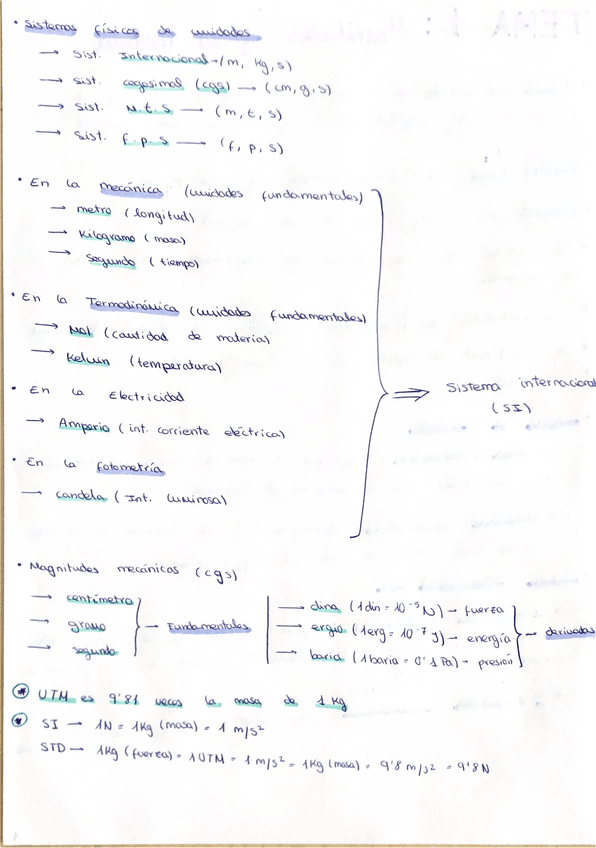 • Sistemas físicos de unidades
→ Sist. Internacional → (m, Kg, s)
→ Sist. cegesimal (cgs) → (cm, g, s)
→ Sist. M.t.s → (m, t, s)
→ Sist. f.p.s → (f, p, s)
• En la mecánica (unidades fundamentales)
→ metro (longitud)
→ Kilogramo (masa)
→ Segundo (tiempo)
• En la Termodinámica (unidades fundamentales)
→ Mol (cantidad de materia)
→ Kelvin (temperatura)
• En la Electricidad
→ Amperio (int. corriente eléctrica)
• En la fotometría
→ candela (Int. luminosa)
⇒ Sistema internacional
(SI)
• Magnitudes mecánicas (cgs)
→ centímetro
→ gramo
→ segundo
→ Fundamentales
→ dina (1 din = 10⁻⁵ N) → fuerza
→ ergio (1 erg = 10⁻⁷ J) → energía
→ baria (1 baria = 0'1 Pa) → presión
→ derivadas
* UTM es 9'81 veces la masa de 1 Kg
* SI → 1N = 1Kg (masa) = 1 m/s²
STD → 1Kg (fuerza) = 1 UTM = 1 m/s² = 1Kg (masa) = 9'8 m/s² = 9'8 N